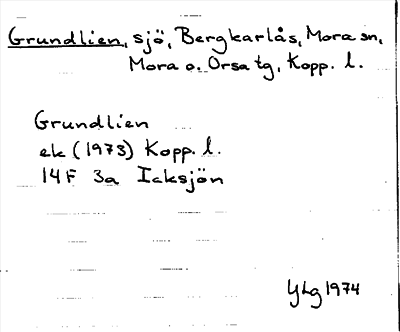 Grundlien, sjö, Bergkarlås, Mora sn,
Mora o. Orsa tg, Kopp. l.
Grundlien
ek (1973) Kopp. l.
14F 3a Icksjön
YLg 1974